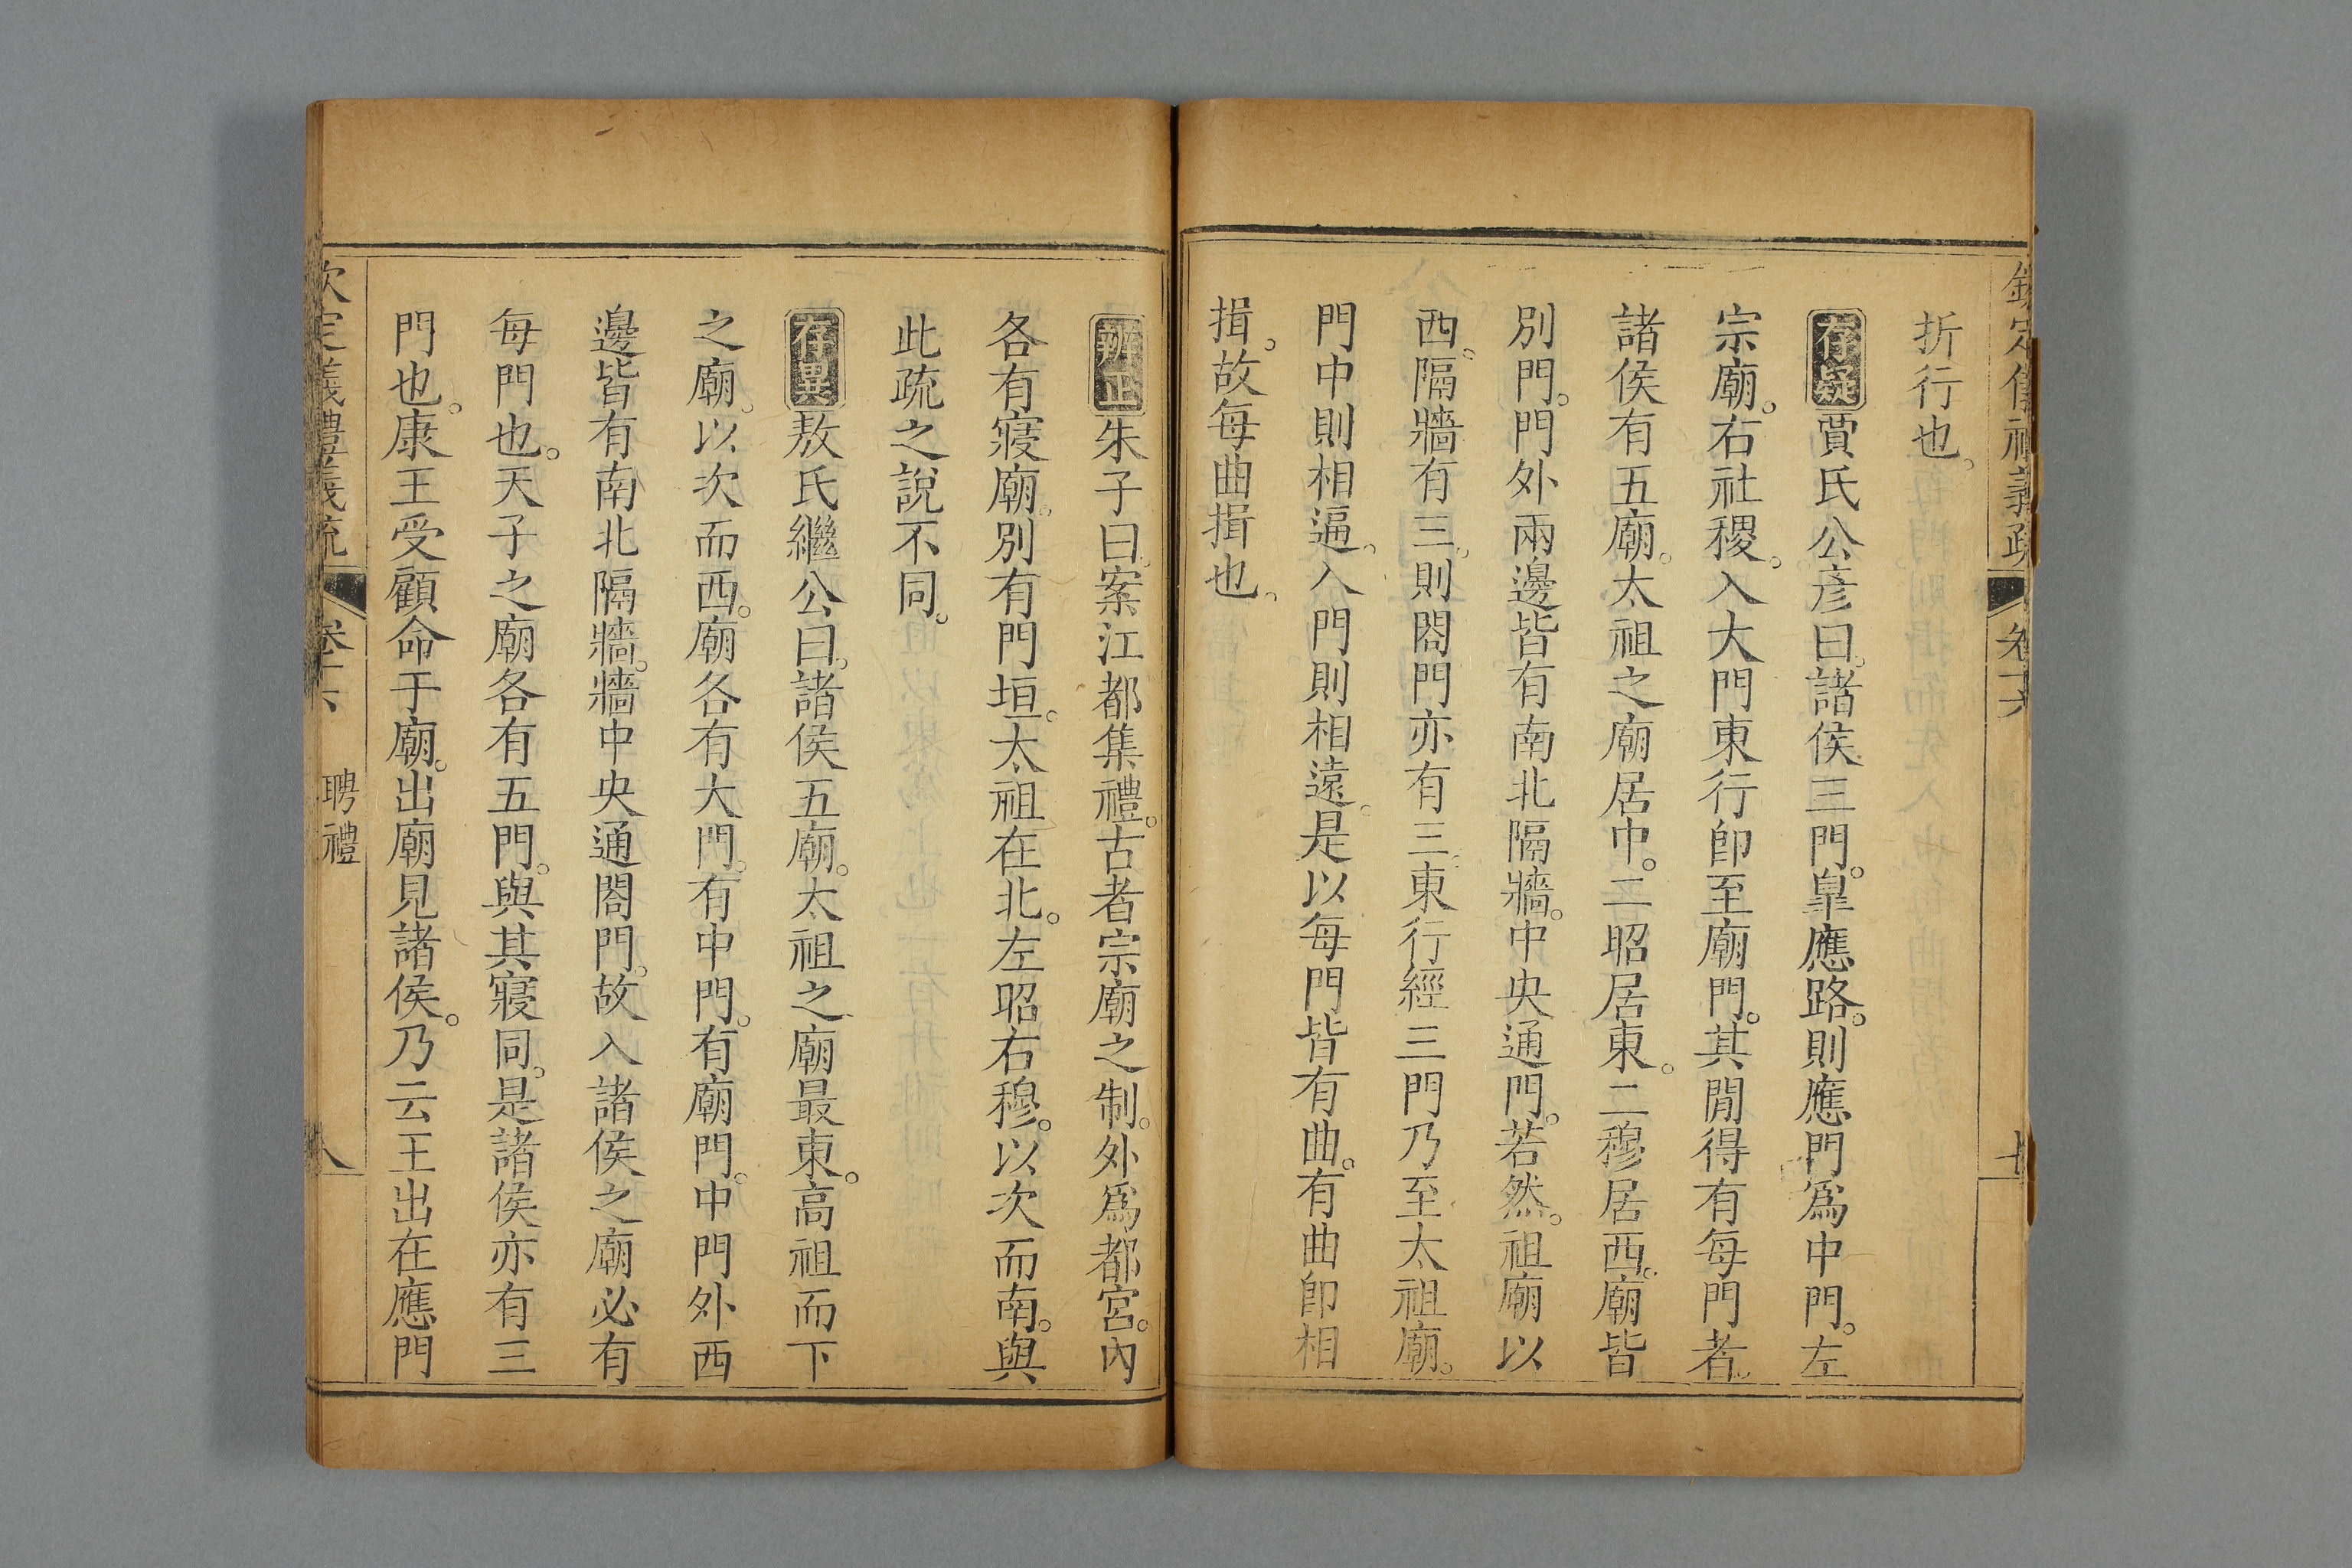 欽定儀禮義疏 卷十六
折行也。
存疑賈氏公彥曰。諸侯三門。臯應路。則應門爲中門。左
宗廟。右社稷。入大門東行卽至廟門。其閒得有每門者。
諸侯有五廟。太祖之廟居中。二昭居東。二穆居西。廟皆
別門。門外兩邊皆有南北隔牆。中央通門。若然。祖廟以
西。隔牆有三。則閤門亦有三。東行經三門乃至太祖廟。
門中則相逼。入門則相遠。是以每門皆有曲。有曲卽相
揖。故每曲揖也。
辨正朱子曰。案江都集禮。古者宗廟之制。外爲都宮。內
各有寢廟。別有門垣。太祖在北。左昭右穆。以次而南。與
此疏之說不同。
存異敖氏繼公曰。諸侯五廟。太祖之廟最東。高祖而下
之廟。以次而西。廟各有大門。有中門。有廟門。中門外西
邊皆有南北隔牆。牆中央通閤門。故入諸侯之廟必有
每門也。天子之廟各有五門。與其寢同。是諸侯亦有三
門也。康王受顧命于廟。出廟見諸侯。乃云王出在應門
欽定義禮義疏 卷十六 聘禮 八